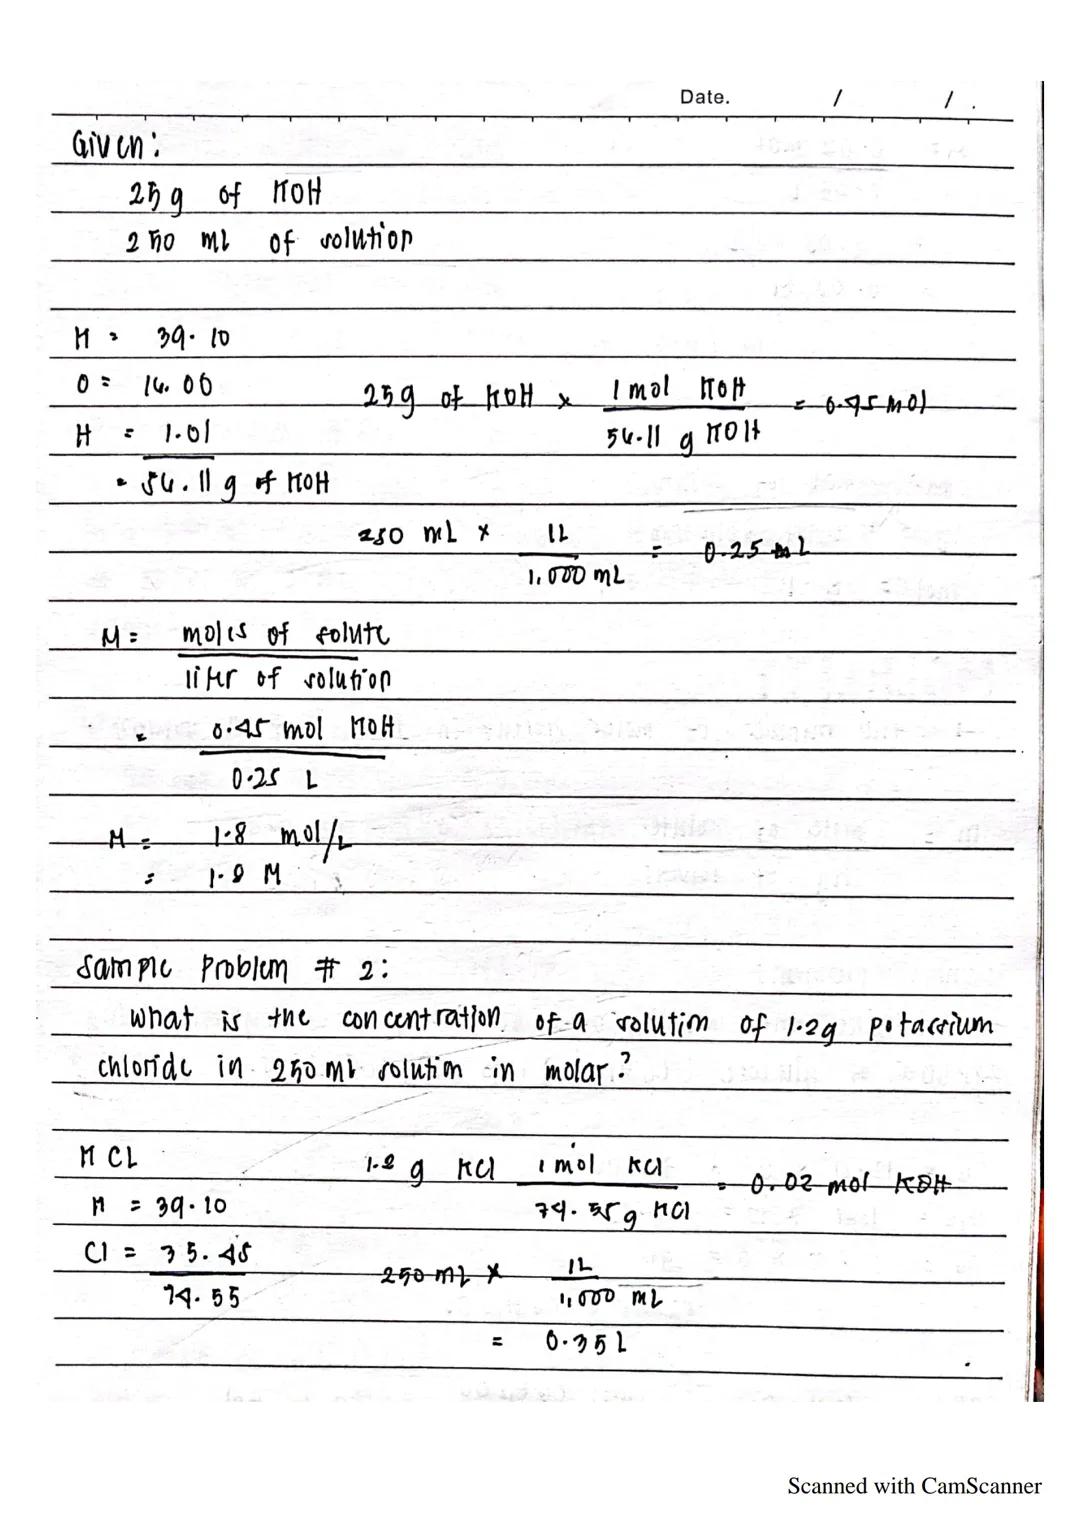 Date. / / .
Given:
25 g of KOH
250 mL of solution
K = 39.10
O = 16.00
H = 1.01
= 56.11 g of KOH
25g of KOH x 1 mol KOH / 56.11 g KOH = 0.45 mol
250 mL x 1L / 1,000 mL = 0.25 L
M = moles of solute / liter of solution
= 0.45 mol KOH / 0.25 L
M = 1.8 mol/L
= 1.8 M
Sample Problem # 2:
What is the concentration of a solution of 1.2g potassium
chloride in 250 mL solution in molar?
K CL
K = 39.10
Cl = 35.45
74.55
1.2 g KCl 1 mol KCl / 74.55 g KCl = 0.02 mol KOH
250 mL x 1L / 1,000 mL
= 0.35 L
Scanned with CamScanner